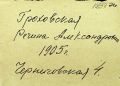 Гроховская
Регина Александровна
1905 г.
Черниговская г.